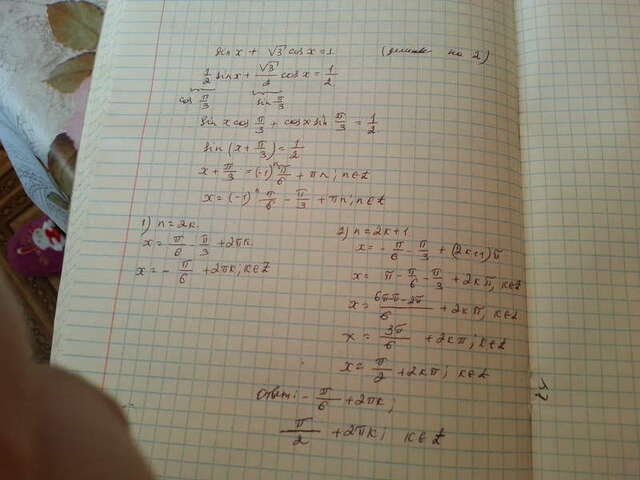 sin x + √3 cos x = 1 (делим на 2)
1/2 sin x + √3/2 cos x = 1/2
cos π/3 sin π/3
sin x cos π/3 + cos x sin π/3 = 1/2
sin (x + π/3) = 1/2
x + π/3 = (-1)ⁿ π/6 + πn; n∈Z
x = (-1)ⁿ π/6 - π/3 + πn; n∈Z
1) n = 2k.
x = π/6 - π/3 + 2πk
x = - π/6 + 2πk; k∈Z
2) n = 2k+1
x = - π/6 - π/3 + (2k+1)π
x = π - π/6 - π/3 + 2kπ, k∈Z
x = 6π-π-2π/6 + 2kπ, k∈Z
x = 3π/6 + 2kπ; k∈Z
x = π/2 + 2kπ; k∈Z
Ответ: - π/6 + 2πk;
π/2 + 2πk; k∈Z